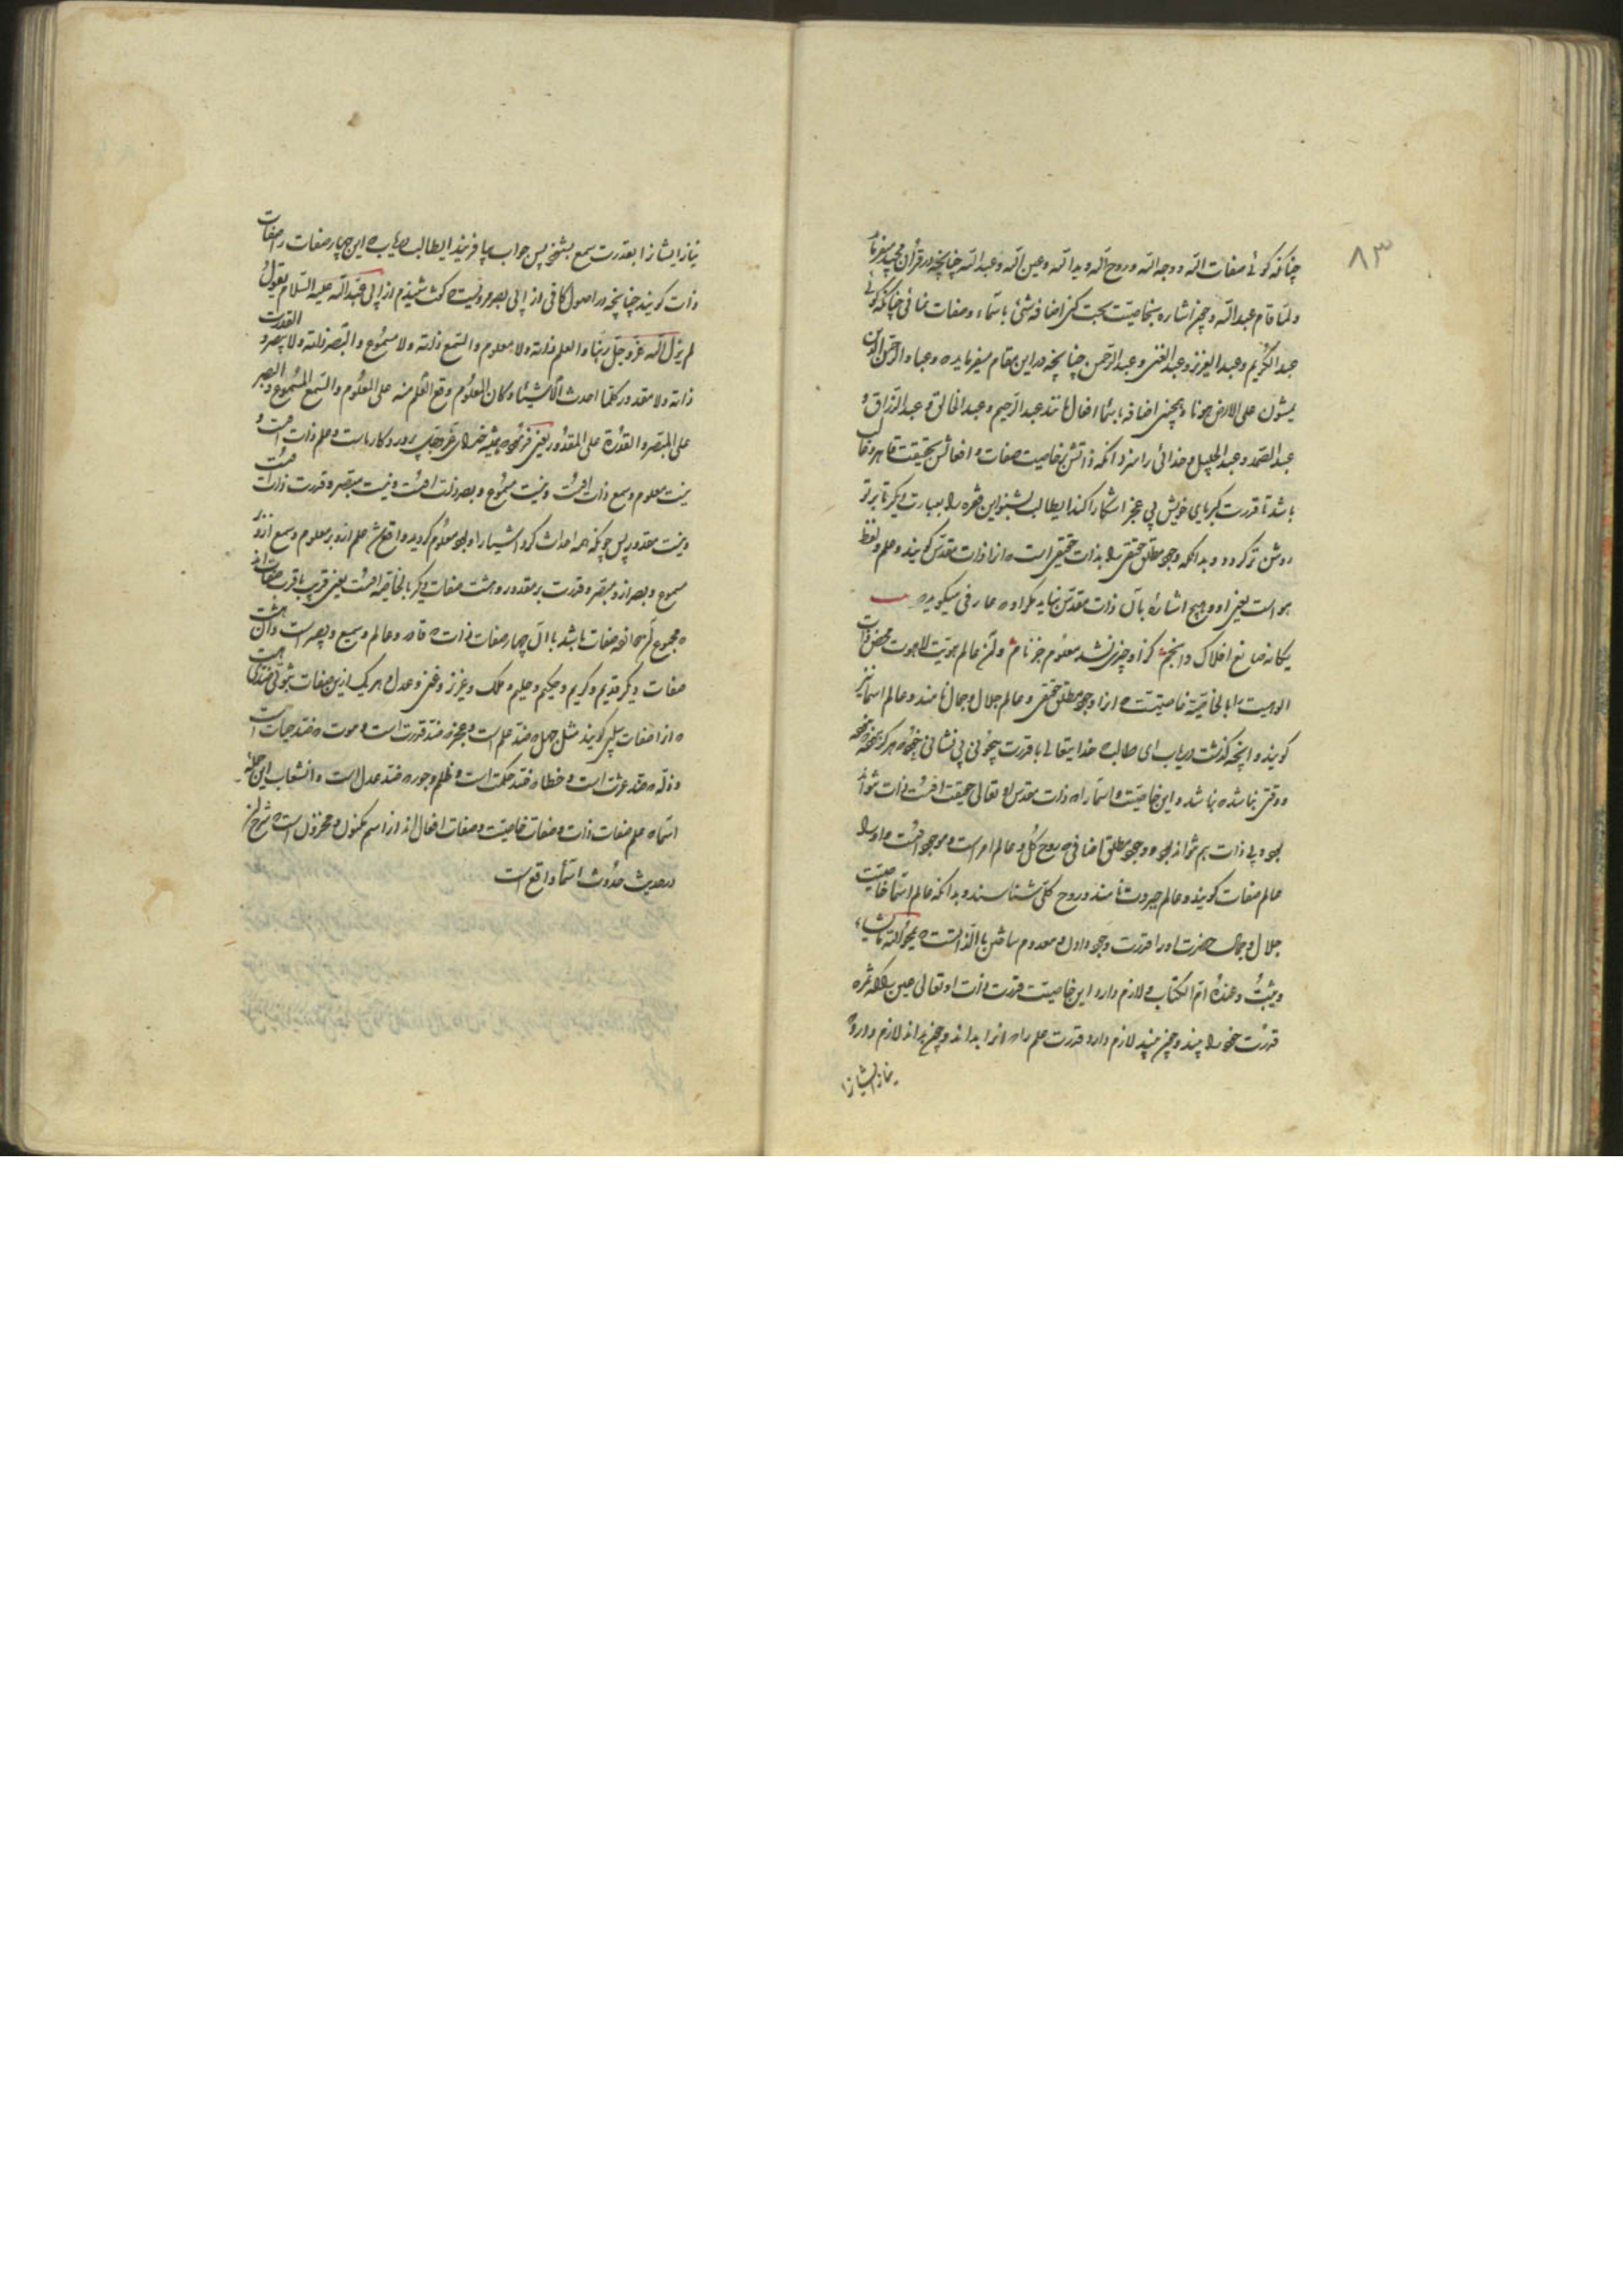 ۸۳
چنانکه گوئی صفات الله و وجه الله و روح الله و ید الله و عین الله و عبد الله چنانچه در قرآن مجید میفرماید
و لما قام عبد الله و چون اشاره بخاصیت بحبت کنی اضافه شئ باسماء و صفات نمائی چنانکه گوئی
عبد الکریم و عبد العزیز و عبد الغنی و عبد الرحمن چنانچه در این مقام میفرماید و عباد الرحمن الذین
یمشون علی الارض هونا و همچنین اضافه باسماء افعال مانند عبد الرحیم و عبد الخالق و عبد الرزاق و
عبد الصمد و عبد الجلیل و خدائی را سزد آنکه ذاتش بخاصیت صفات و افعالش بحقیقت قاهر و غالب
باشد تا قدرت کبریای خویش بی عجز آشکارا کند ایطالب بشنو این فقره را بعبارت دیگر تا بر تو
روشن تر گردد و بدانکه وجود مطلق حقیقی را بذات حقیقی است از ذات مقدس گویند و علم و لفظ
هو است یعنی او و هیچ اشاره بآن ذات مقدس نیاید مگر او عارفی میگوید
یگانه صانع افلاک و انجم کز او چیزی نشد معلوم جز نام و آن عالم هویت لاهوت محض ذات
الوهیت را بالخاصیة خاصیتست از وجود مطلق حقیقی و عالم جلال و جمال نامند و عالم اسما نیز
گویند و آنچه گذشت دریاب ای طالب خدا یتعالی با قدرت بیچونی بی نشانی خود هرگز
و وقتی نباشد نباشد و این خاصیت و اسما را ذات مقدس او تعالی حقیقت ذات تواند
بود و بی ذات هم تواند بود و وجود مطلق اضافی روح کل و عالم امر است و موجود است و او را
عالم صفات گویند و عالم جبروت نامند و روح کلی شناسند و بدانکه عالم اسما خاصیت
جلال و جمال حضرت او را قدرت وجود دادن و معدوم ساختن بالذاتست یمحو الله ما یشاء
و یثبت و عنده ام الکتاب و لازم دارد این خاصیت قدرت ذات او تعالی عین را که ثمره
قدرت خود را بیند و چون بیند لازم دارد قدرت علم را که آنرا بداند و چون بداند لازم دارد
نیاز ایشانرا
نیاز ایشانرا بقدرت سمع بشنود پس جواب بیافریند ایطالب دریاب این چهار صفات را صفات
ذات گویند چنانچه در اصول کافی از ابی بصیر مرویست که گفت شنیدم از ابی عبد الله علیه السلام یقول
لم یزل الله عز و جل ربنا و العلم ذاته و لا معلوم و السمع ذاته و لا مسموع و البصر ذاته و لا مبصر و القدرت
ذاته و لا مقدور فلما احدث الاشیاء و کان المعلوم وقع العلم منه علی المعلوم و السمع علی المسموع و البصر
علی المبصر و القدرة علی المقدور یعنی فرمود همیشه خدای عز و جل پروردگار ماست و علم ذات اوست و
نیست معلوم و سمع ذات اوست و نیست مسموع و بصر ذات اوست و نیست مبصر و قدرت ذات اوست
و نیست مقدور پس چونکه احداث کرد اشیا را و بود معلوم گردید واقع شد علم ازو بر معلوم و سمع ازو بر
مسموع و بصر ازو بر مبصر و قدرت بر مقدور و هشت صفات دیگر بالخاصیه اوست یعنی قریب باقرب صفات ذاتند
مجموع صفات باشد با آن چهار صفات ذات قادر و عالم و سمیع و بصیر است و آن هشت
صفات دیگر قدیم و کریم و حکیم و حلیم و ملک و عزیز و غنی و عدل و هر یک ازین صفات ثبوتی ضدی هست
از صفات سلبی گویند مثل جهل ضد علم است و عجز ضد قدرت است و موت ضد حیات است
و ذلة ضد عزتست و خطا ضد حکمت است و ظلم و جور ضد عدل است و انشعاب این جمله
اسما علم صفات ذات و صفات خاصیت و صفات افعال اند از اسم مکنون و مخزون است شرح آن
در حدیث حدوث اسما واقع است